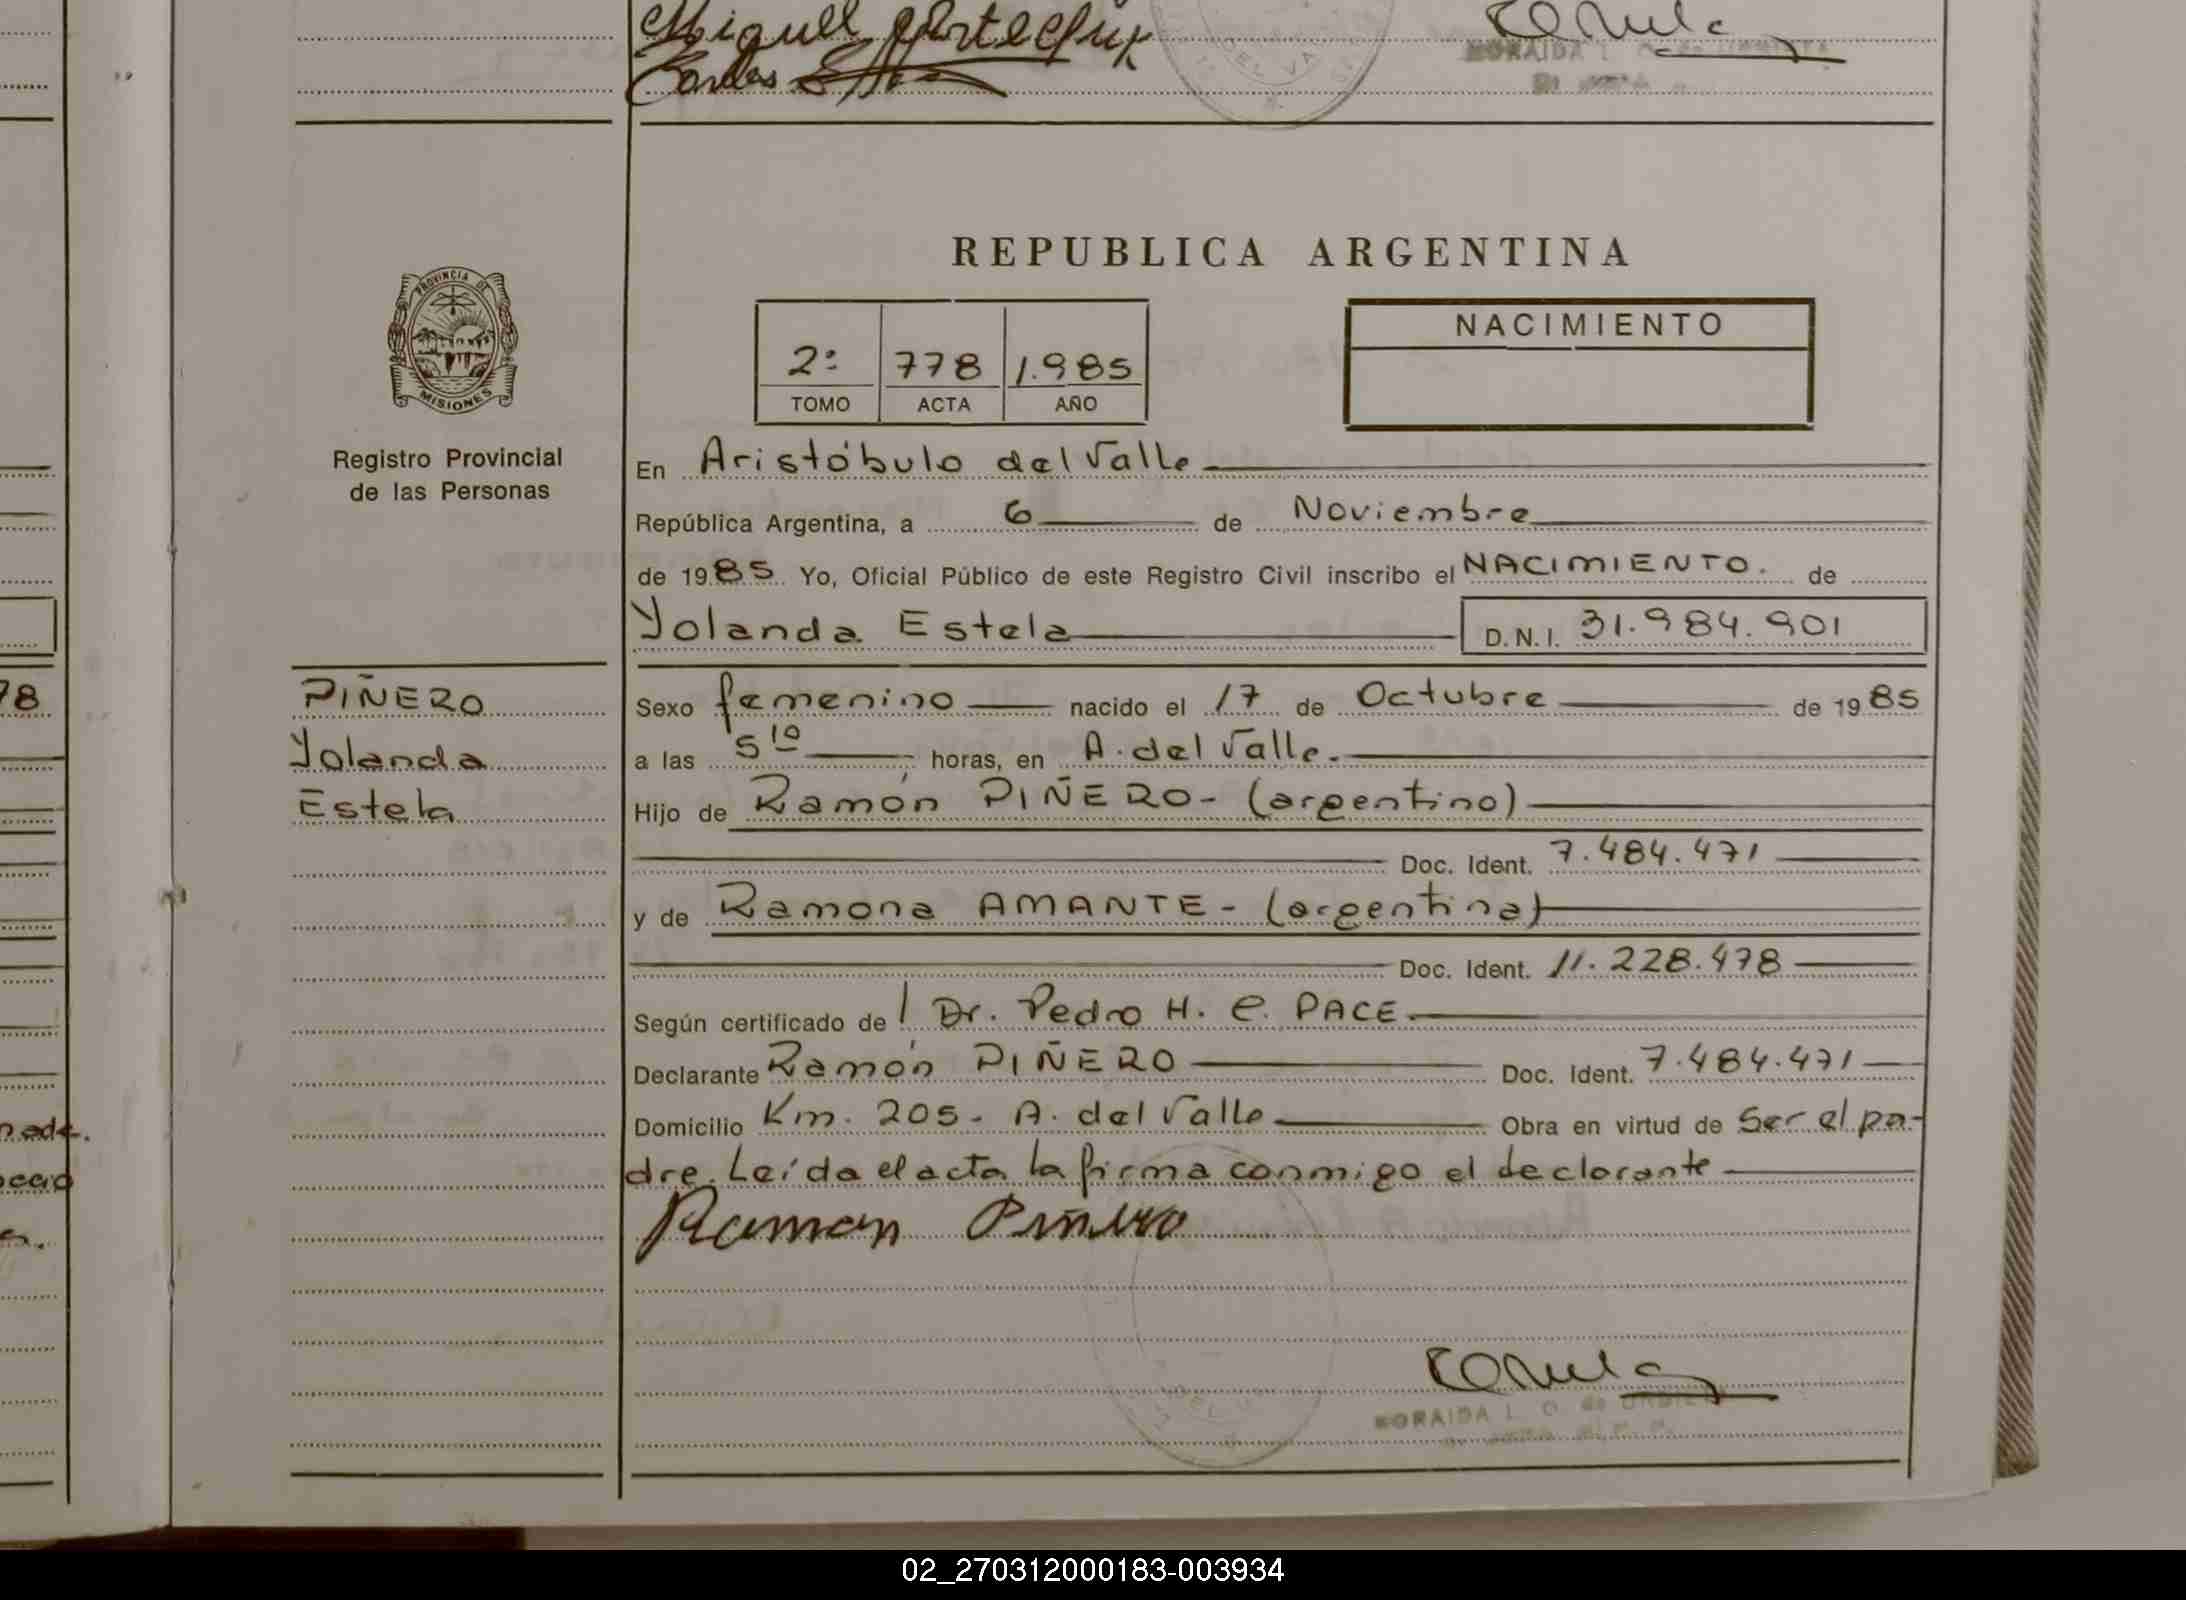 Miguel
Carlos
REPUBLICA ARGENTINA
PROVINCIA DE
MISIONES
NACIMIENTO
2º 778 1.985
TOMO ACTA AÑO
Registro Provincial
de las Personas
En Aristóbulo del Valle
República Argentina, a 6 de Noviembre
de 1985 Yo, Oficial Público de este Registro Civil inscribo el NACIMIENTO. de
Yolanda Estela D.N.I. 31.984.901
78
PIÑERO
Yolanda
Estela
Sexo femenino nacido el 17 de Octubre de 1985
a las 5 10 horas, en A. del Valle.
Hijo de Ramón PIÑERO - (argentino)
Doc. Ident. 7.484.471
y de Ramona AMANTE - (argentina)
Doc. Ident. 11.228.478
Según certificado de l Dr. Pedro H. C. PACE
Declarante Ramón PIÑERO Doc. Ident. 7.484.471
Domicilio Km. 205 - A. del Valle Obra en virtud de Ser el pa-
dre. Leída el acta la firma conmigo el declarante
Ramon Piñero
NORAIDA L. O. de
02_270312000183-003934